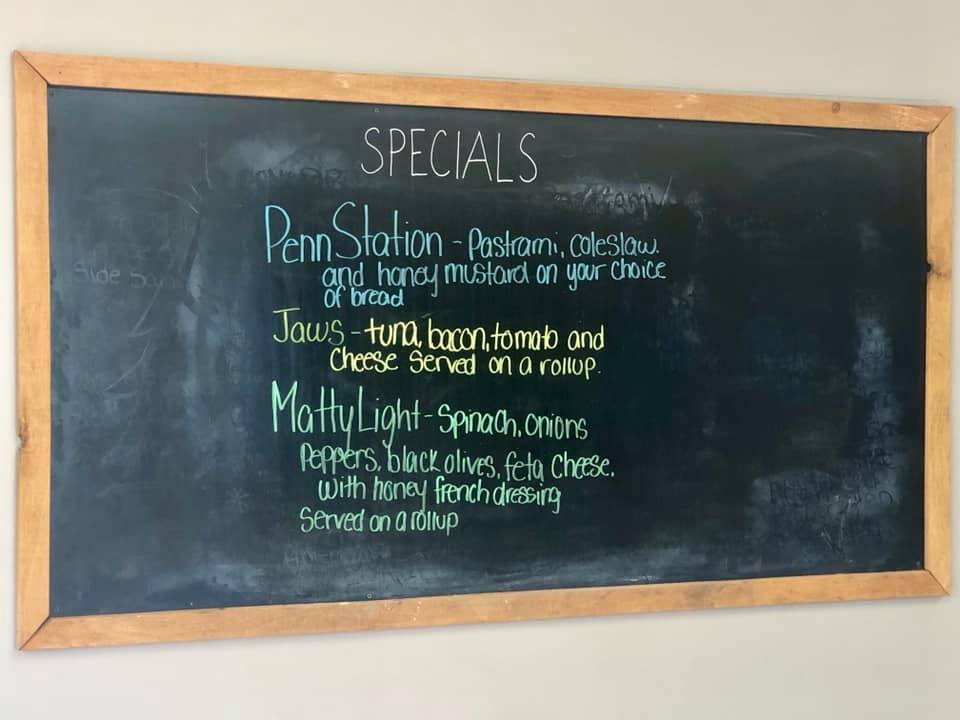 SPECIALS
Penn Station - Pastrami, coleslaw.
and honey mustard on your choice
of bread
Jaws - tuna, bacon, tomato and
Cheese Served on a rollup.
Matty Light - Spinach, onions
Peppers, black olives, feta Cheese,
with honey french dressing
Served on a rollup